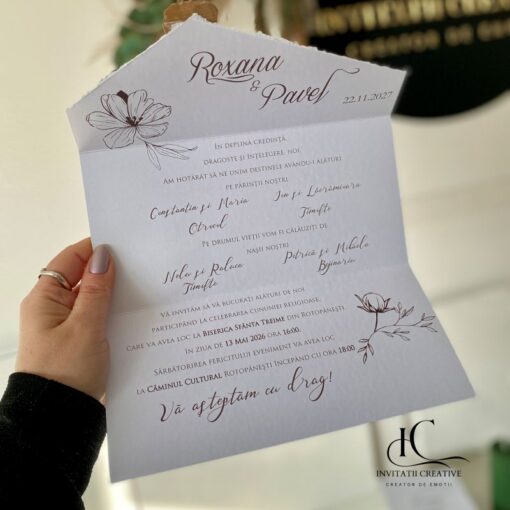 INVITATII CREATIVE
CREATOR DE
Roxana
&
Pavel
22.11.2027
În deplina credință,
dragoste și înțelegere, noi,
Am hotărât să ne unim destinele avându-i alături
pe părinții noștri
Constantin și Maria
Otrocol
Ion și Lăcrămioara
Timofte
Pe drumul vieții vom fi călăuziți de
nașii noștri
Nelu și Raluca
Timofte
Petrică și Mihaela
Bejinariu
Vă invităm să vă bucurați alături de noi
participând la celebrarea cununiei religioase,
care va avea loc la Biserica Sfânta Treime din Rotopănești,
în ziua de 13 Mai 2026 ora 16:00.
Sărbătorirea fericitului eveniment va avea loc
la Căminul Cultural Rotopănești începând cu ora 18:00
Vă așteptăm cu drag!
IC
INVITATII CREATIVE
CREATOR DE EMOTII